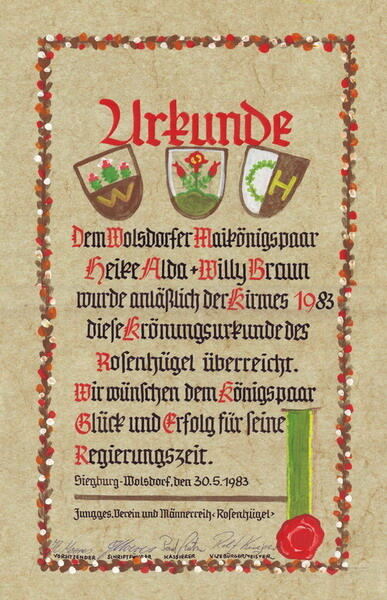 Urkunde
W
H
Dem Wolsdorfer Maikönigspaar
Heike Alda + Willy Braun
wurde anläßlich der Kirmes 1983
diese Krönungsurkunde des
Rosenhügel überreicht.
Wir wünschen dem Königspaar
Glück und Erfolg für seine
Regierungszeit.
Siegburg-Wolsdorf, den 30.5.1983
Jungges. Verein und Männerreih ‹Rosenhügel›
VORSITZENDER SCHRIFTFÜHRER KASSIERER VIZEBÜRGERMEISTER